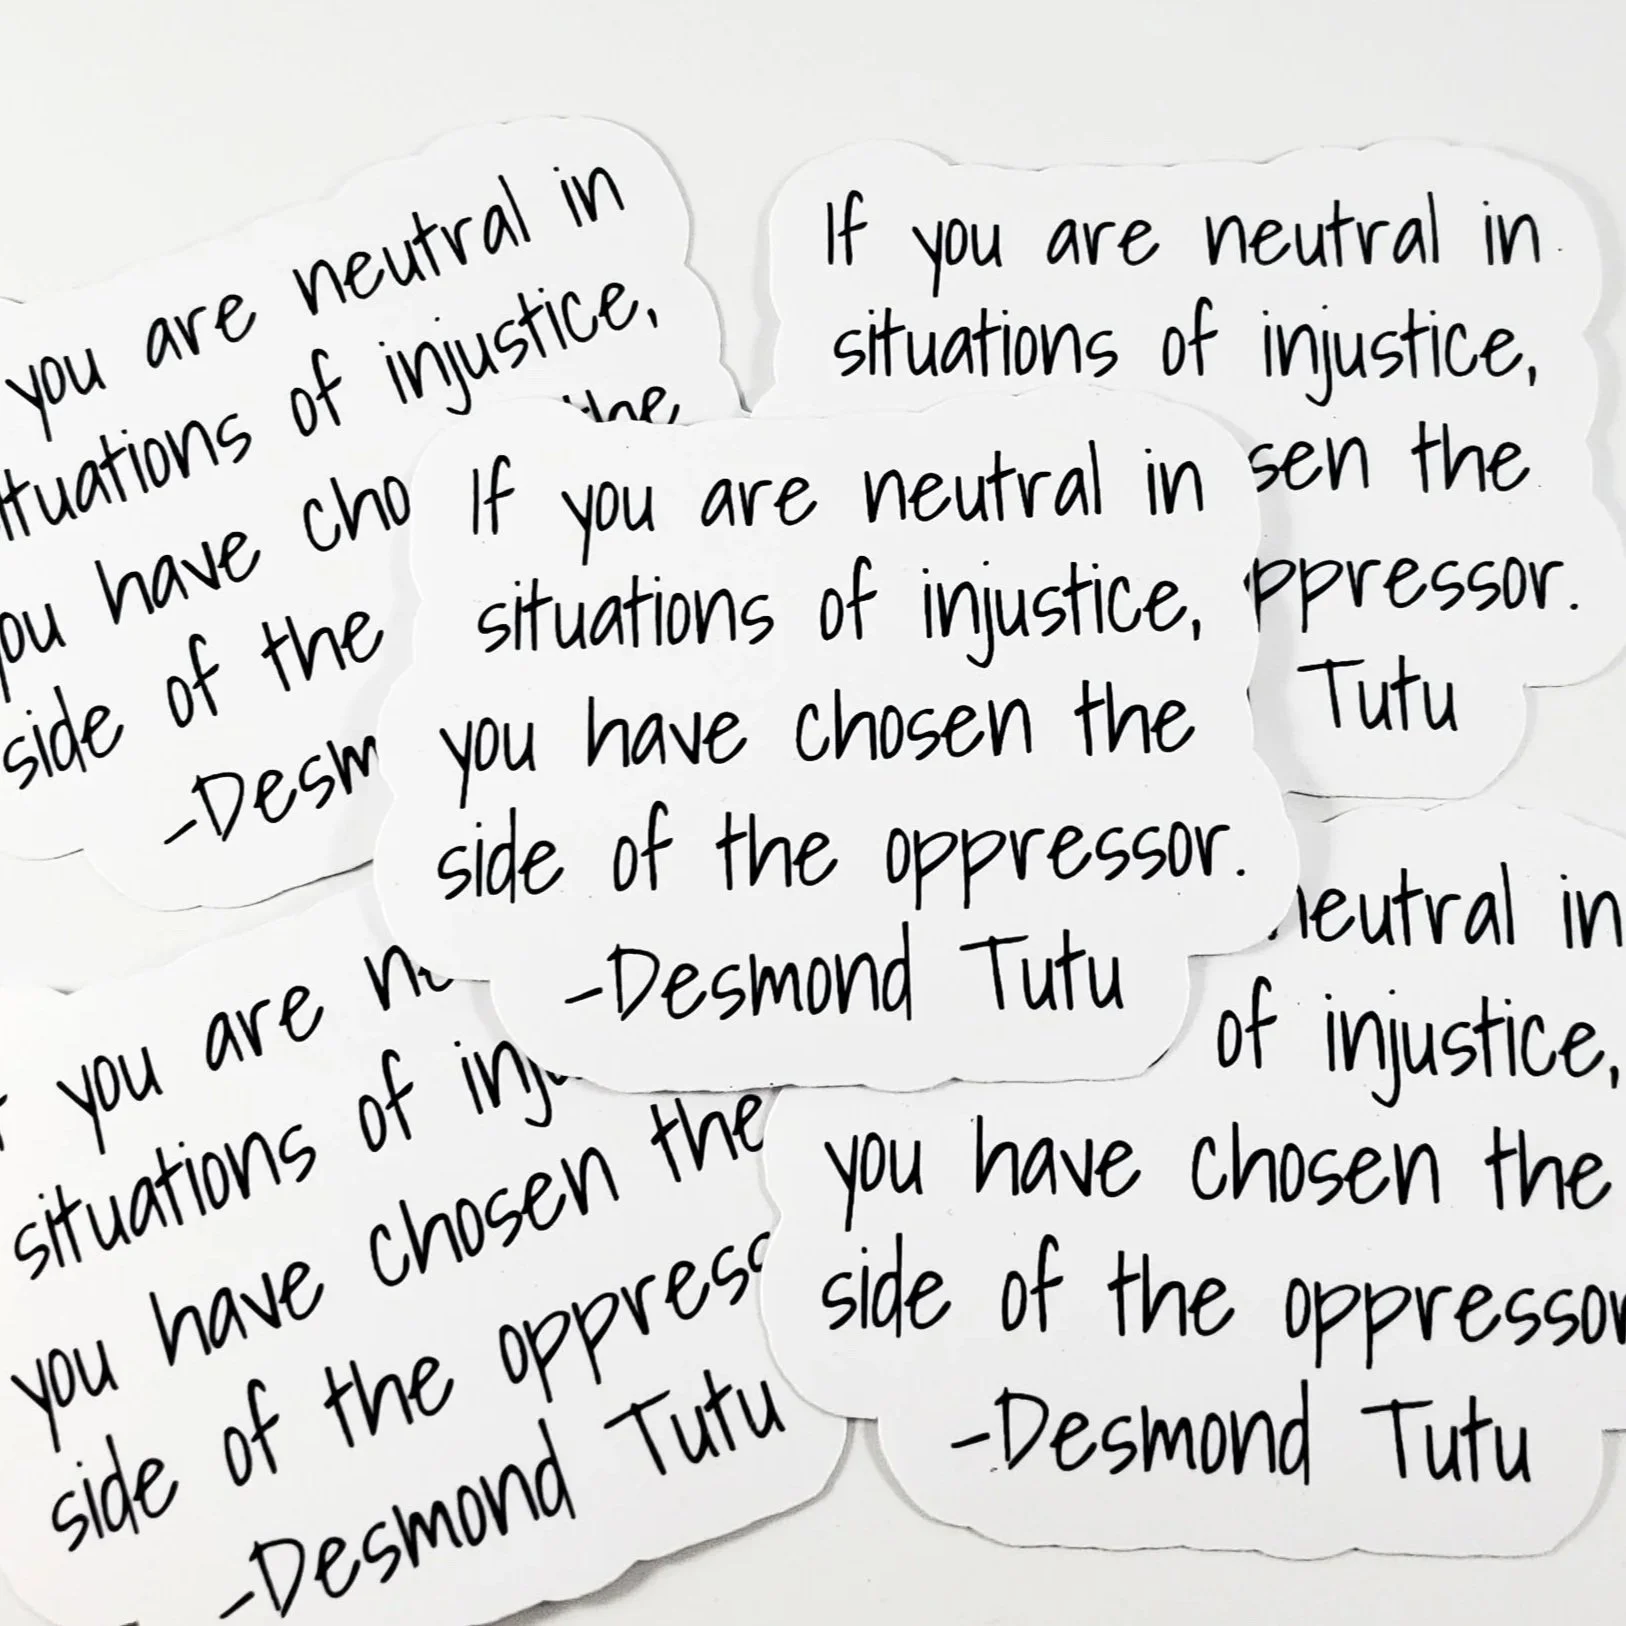 you are neutral in
situations of injustice,
the
you have cho
side of the
-Desm
If you are neutral in
situations of injustice,
sen the
ppressor.
Tutu
If you are neutral in
situations of injustice,
you have chosen the
side of the oppressor.
-Desmond Tutu
you are
situations of inj
you have chosen the
side of the oppress
-Desmond Tutu
neutral in
of injustice,
you have chosen the
side of the oppressor
-Desmond Tutu